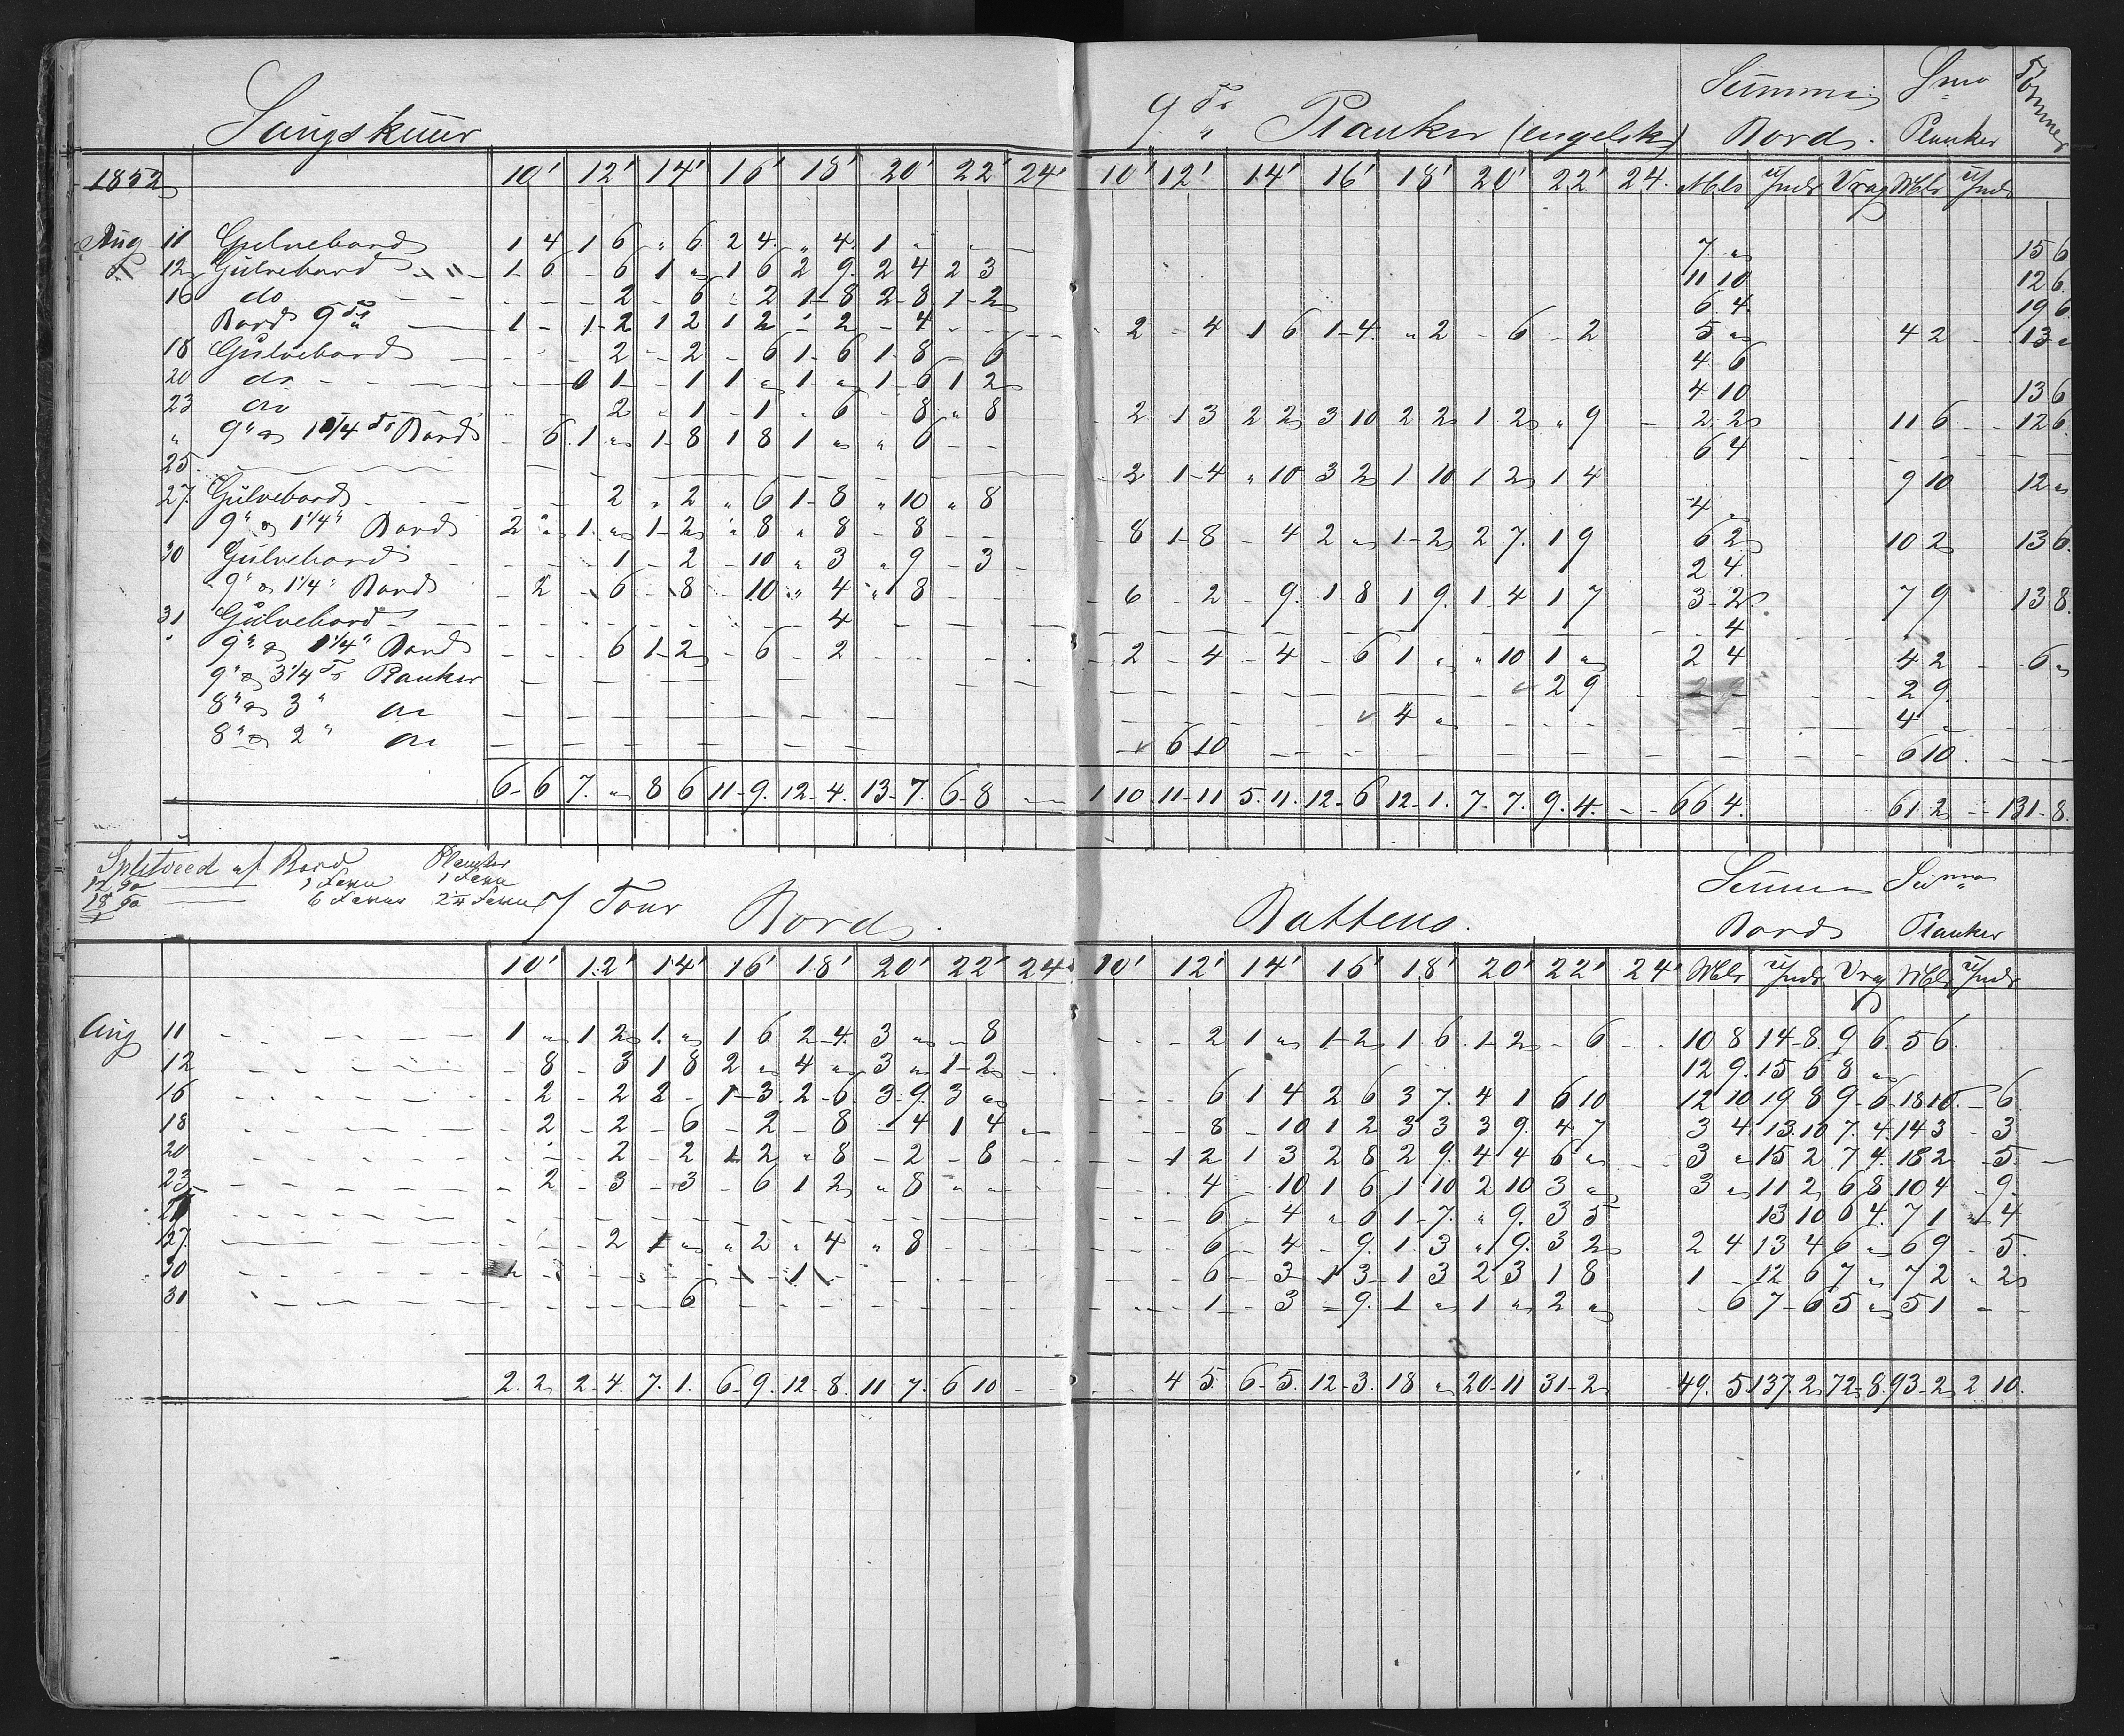 Saugskuur
9 To " Planker (engelske)
Summa Bord. Sma Planker Tømmer
1852 10' 12' 14' 16' 18' 20' 22' 24' 10' 12' 14' 16' 18' 20' 22' 24. Mbls Unds Vrag Mbls Unds
Aug 11 Gulvebord 1 4 1 6 " 6 2 4. " 4. 1 " 7 " 15 6
12 Gulvebord - " - 1 - 6 - 6 1 " 1 6 2 9. 2 4 2 3 11 10 12 6.
16 do - - - 2 - 6 " 2 1-8 2-8 1-2 6 4. 19 6
Bord 9 To " 1 - 1-2 1 2 1 2 - 2 - 4 - - 2 - 4 1 6 1-4. " 2 - 6 - 2 5 " 4 2 - 13 "
18 Gulvebord - - 2 - 2 - 6 1-6 1-8 - 6 4 6
20 do - - 1 - - 1 1 " 1 - " 1-6 1 2 4 10 13 6
23 do - - 2 " 1 - 1 " 6 - 8 " 8 - 2 1 3 2 2 3 10 2 2 1. 2 " 9 2 2 11 6 - 12 6.
" 9" a 1 1/4 To Bord - 6 1 " 1-8 1 8 1 " " 6 - - 6 4
25. - - - - 2 1-4 " 10 3 2 1 10 1 2 1 4 9 10 12 "
27. Gulvebord - - 2 " 2 " 6 1-8 " 10 " 8 4 "
9" a 1 1/4" Bord 2 " 1. " 1-2 " 8 " 8 - 8 - - 8 1-8 - 4 2 " 1-2 2 7. 1 9 6 2 10 2 13 6.
30 Gulvebord - - 1 - 2 - 10 " 3 " 9 - 3 - 2 4.
9" a 1 1/4" Bord - 2 - 6 - 8 - 10 " 4 " 8 - - 6 - 2 - 9. 1 8 1 9. 1-4 1 7 3-2 7 9 13 8.
31 Gulvebord - - - - - 4 - - - - 4
" 9" a 1 1/4" Bord - - - 6 1-2 - 6 - 2 - - - 2 - 4 - 4 - 6 1 " " 10 1 " 2 4 4 2 - 6 "
9" a 3 1/4 To Planker - - - - 2 9 2 9.
8" a 3 " do - - - - 4 " - - 4 "
8" a 2 " do - - - - 6 10 - - - 6 10.
6-6 7. " 8 6 11-9. 12-4. 13-7. 6-8 - 1 10. 11-11 5. 11. 12-6 12-1. 7. 7. 9. 4. - - 66 4. 61 2 - 131-8.
Splitveed af Bord Planker
1 Favn 1 Favn
6 Favne
7 Tour Bord.
Battens.
Summa Bord Suma Planker
10' 12' 14' 16' 18' 20' 22' 24' 10' 12' 14' 16' 18' 20' 22' 24' Mbls Unds Vrag Mbls Unds
Aug 11 1 " 1 2 1. " 1 6 2-4. 3 " - 8 - - - 2 1 " 1-2 1 6. 1-2 - 6 - 10 8 14-8. 9 6. 5 6.
12 - 8 - 3 1 8 2 " 4 " 3 " 1-2 - 12 9. 15 6 8 "
16 - 2 - 2 2 - 1-3. 2-6. 3-9. 3 " - - - 6 1 4 2 6 3 7. 4 1 6 10 12 10 19 8 9-6 18 10. - 6.
18 - 2 - 2 - 6 - 2 - 8 - 4 1 4 - - - - 8 - 10 1 2 3 3 3 9. 4 7 3 4 13. 10 7. 4. 14 3 - 3
20 - - - 2 - 2 1 2 " 8 - 2 - 8 - - - 1 2 1 3 2 8 2 9. 4 4 6 " 3 " 15 2 7 4. 18 2 - 5 -
23. - 2 - 3 - 3 - 6 1 2 " 8 " - - - 4 - 10 1 6 1 10 2 10 3 " 3 " 11 2 6 8 10 4 - 9.
- - - - 6 - 4 " 6 1-7. " 9. 3 5 13 10 6 4. 7 1 " 4
27. - - - 2 1 " " 2 " 4 " 8 - - - 6 - 4 - 9. 1. 3 " 9. 3 2 2 4 13 4 6 " 6 9 - 5.
30 - - - - - 1 - - - 6 - 3 - 1 3 - 1 3 2 3 1 8 1 - 12 6 7 " 7 2 " 2
31 - - - - 6 - - - - 1 - 3 - 9. 1 " 1 " 2 " - 6 7-6 5 " 5 1 - -
2. 2 2-4. 7. 1. 6-9. 12-8. 11-7. 6 10 - - - 4 5. 6-5. 12-3. 18 " 20-11 31-2 49. 5 137. 2 72-8. 93-2 2 10.